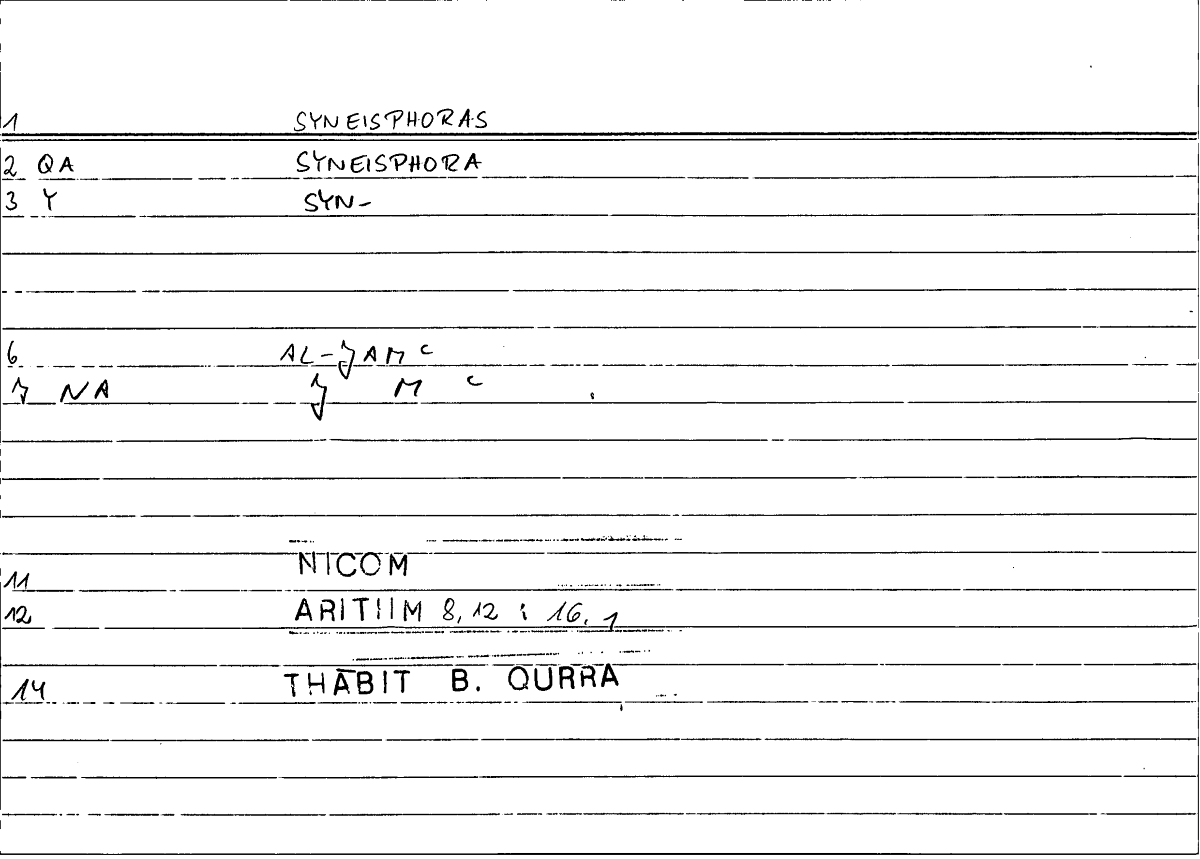 1 SYNEISPHORAS
2 QA SYNEISPHORA
3 Y SYN-
6 AL-ǦAMc
7 NA Ǧ M c
11 NICOM
12 ARITHM 8,12 : 16,1
14 THĀBIT B. QURRA